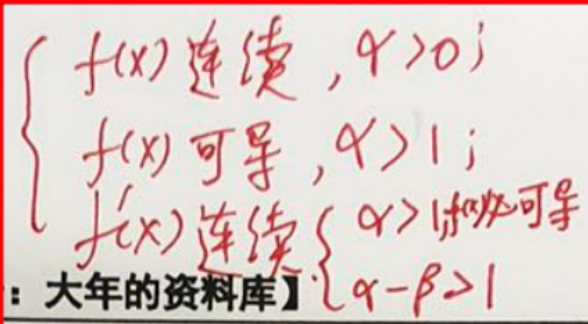 f(x) 连续, α>0;
f(x) 可导, α>1;
f'(x) 连续 { α>1, f(x)必可导
α-β>1
: 大年的资料库】